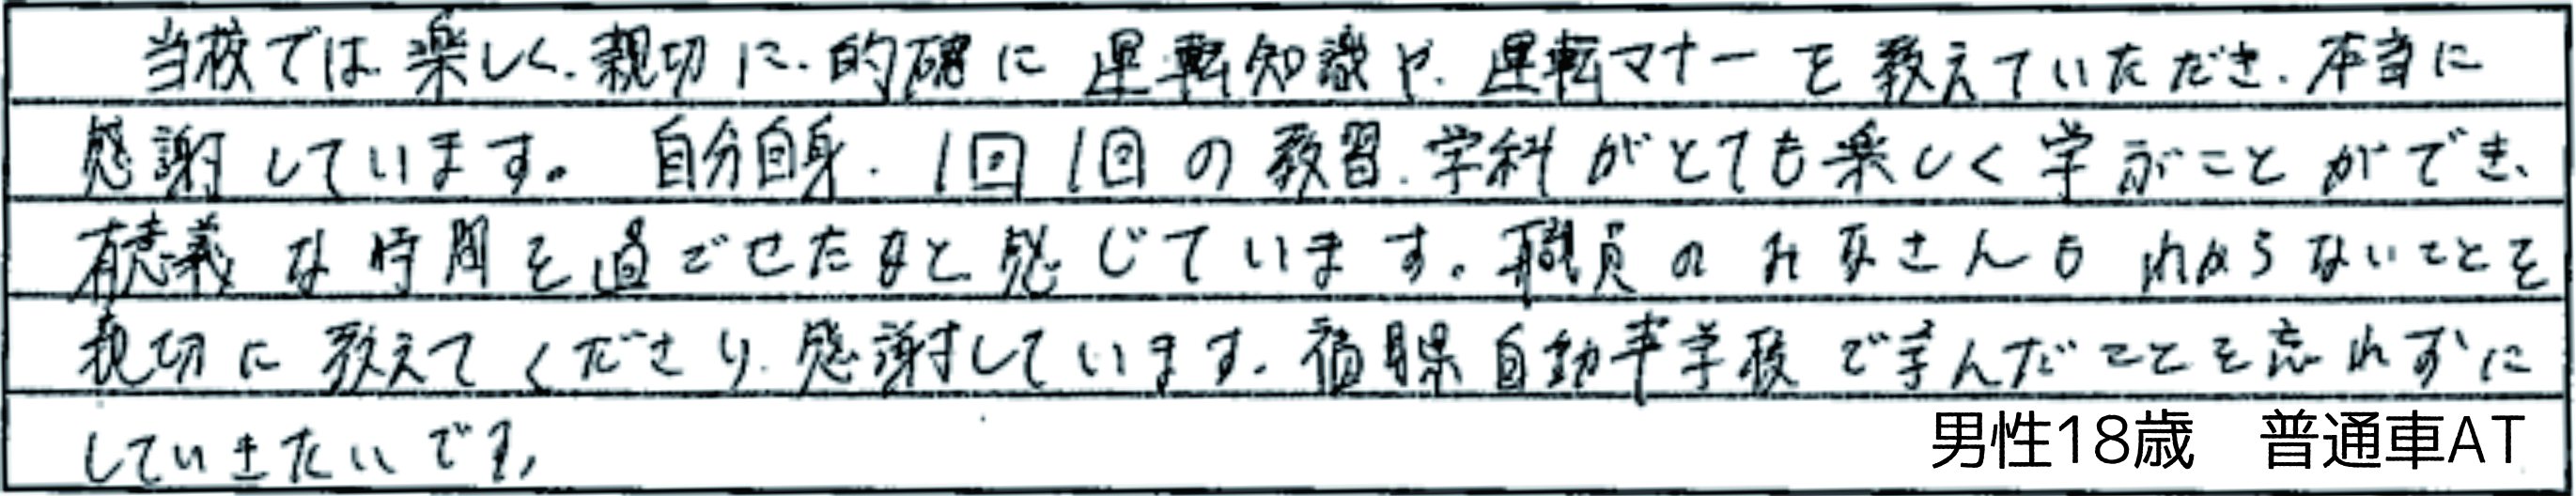 当校では、楽しく、親切に、的確に運転知識や、運転マナーを教えていただき、本当に
感謝しています。自分自身、1回1回の教習、学科がとても楽しく学ぶことができ、
有意義な時間を過ごせたなと感じています。職員のみなさんもわからないことを
親切に教えてくださり、感謝しています。福島県自動車学校で学んだことを忘れずに
していきたいです。
男性18歳 普通車AT